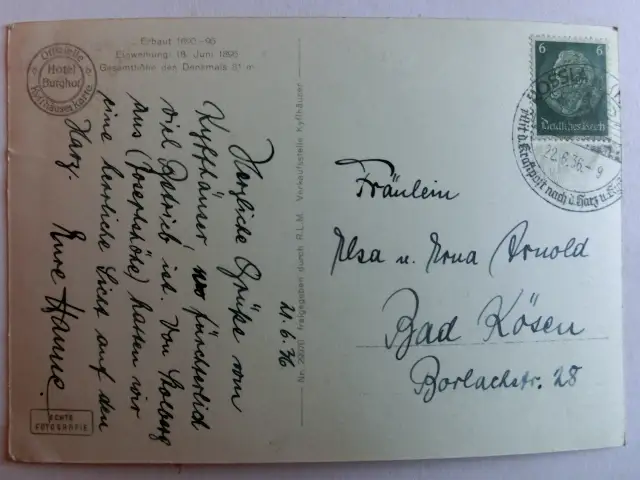 Erbaut 1890-96
Einweihung: 18. Juni 1896
Gesamthöhe des Denkmals 81 m
Offizielle
Hotel
Burghof
Kyffhäuser Karte
21.6.36
Herzliche Grüße vom
Kyffhäuser wo fürchterlich
viel Betrieb ist. Von Stolberg
aus (Josephshöhe) hatten wir
eine herrliche Sicht auf den
Harz.
Eure Hanne.
ECHTE
FOTOGRAFIE
freigegeben durch R.L.M. Verkaufsstelle Kyffhäuser
6 6
Deutsches Reich
22.6.36.-9
Mit d. Kraftpost nach d. Harz u.
Fräulein
Elsa u. Erna Arnold
Bad Kösen
Borlachstr. 28